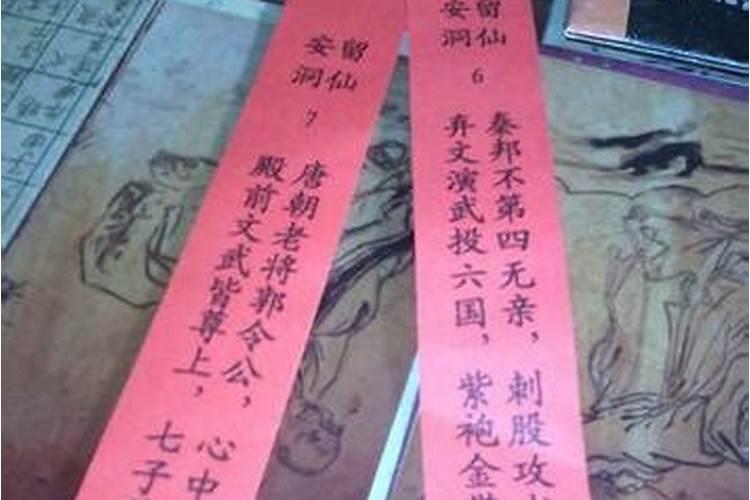 留仙
安洞
6
秦邦不第四无亲，刺股攻
弃文演武投六国，紫袍金
留仙
安洞
7
唐朝老将郭令公，心中
殿前文武皆尊上，七子